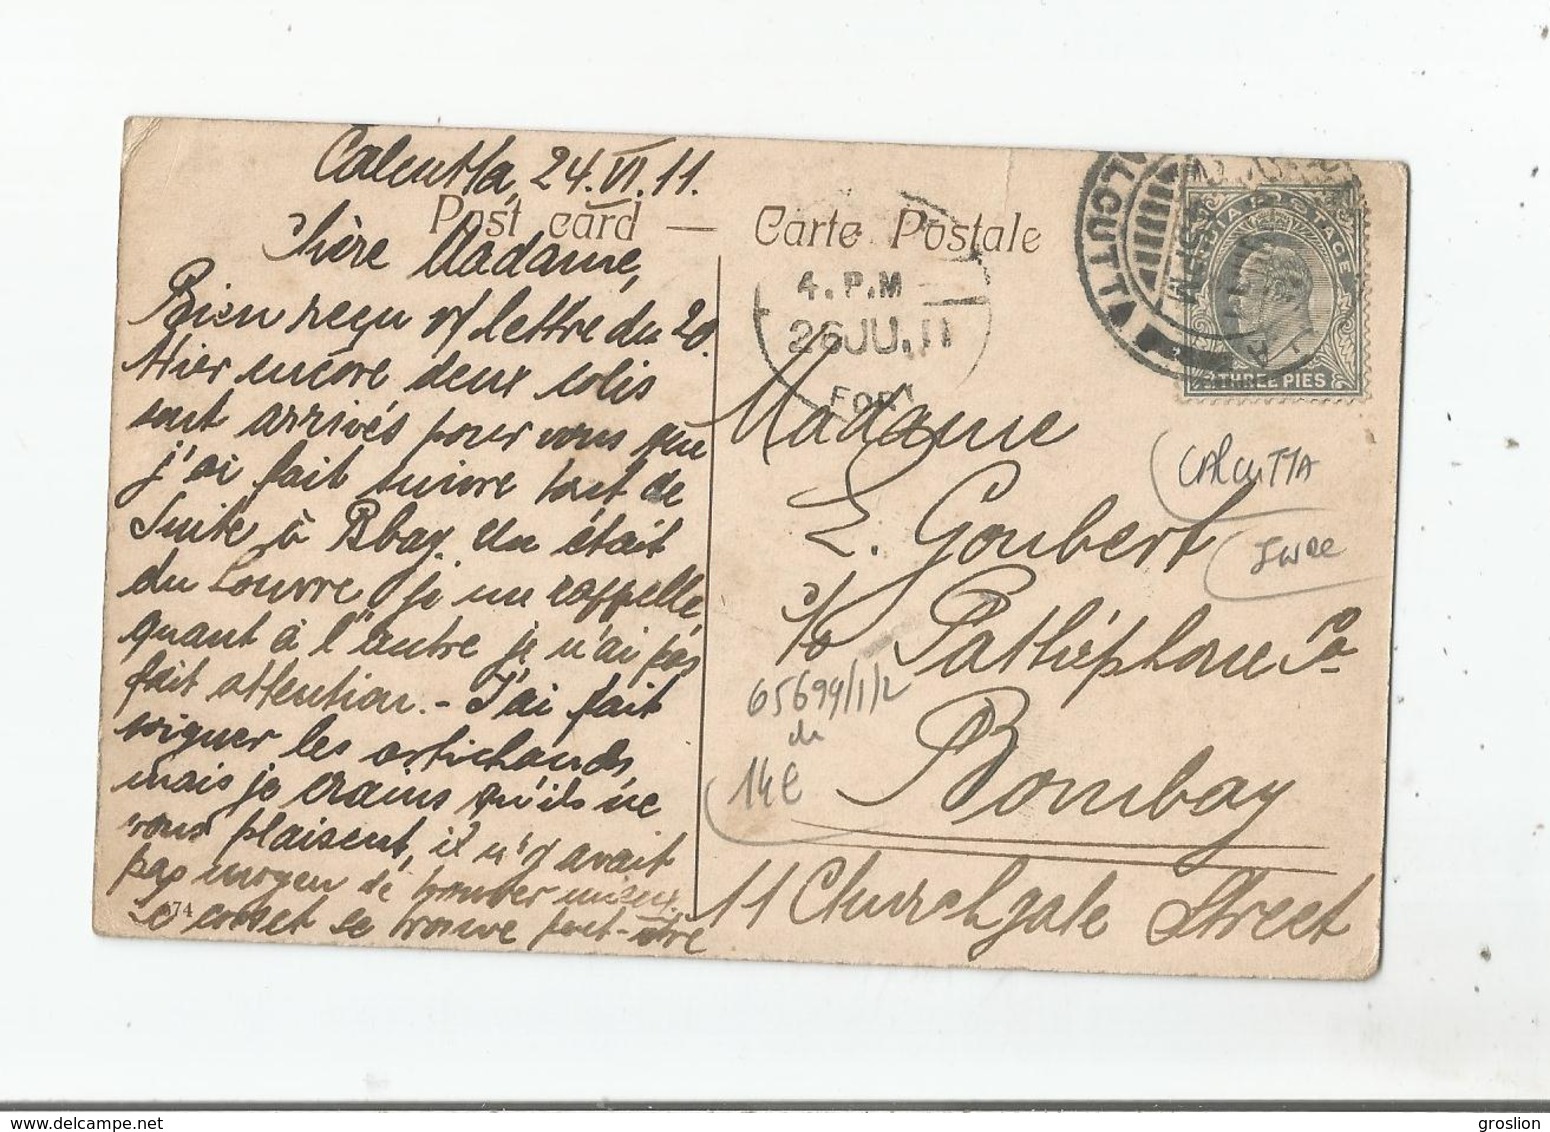 Calcutta, 24.VI.11.
Post card — Carte Postale
Chère Madame,
Bien reçu v/ lettre du 20.
Hier encore deux colis
sont arrivés pour vous que
j'ai fait suivre tout de
suite à Bbay. Un était
du Louvre, je me rappelle,
quant à l'autre je n'ai pas
fait attention. - J'ai fait
signer les artichauds,
mais je crains qu'ils ne
vous plaisent, il n'y avait
pas moyen de trouver mieux
Le corset se trouve peut-être
74
4.P.M
26JU.11
FORT
CALCUTTA
POSTAGE
THREE PIES
Madame
E. Goubert
c/o Pathéphone Co
Bombay
11 Churchgate Street
CALCUTTA
Inde
65699/1/2
14 €
www.delcampe.net
groslion